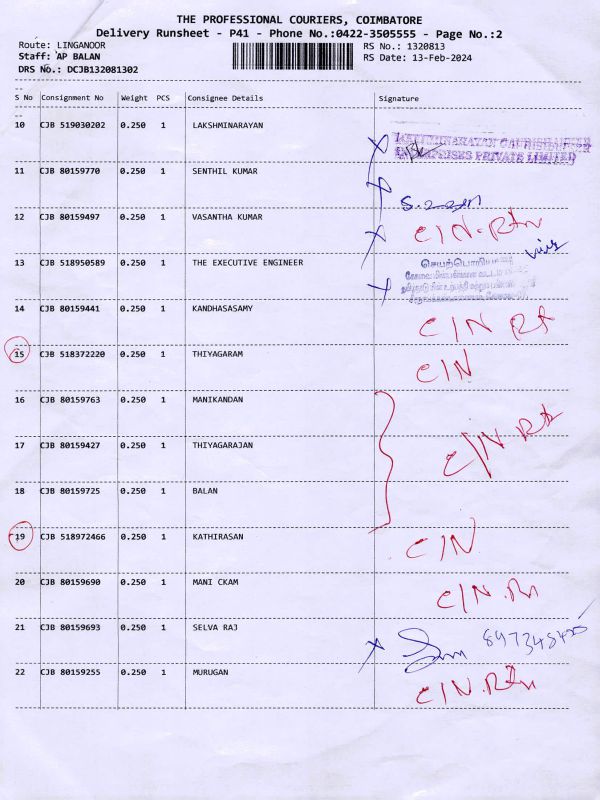 THE PROFESSIONAL COURIERS, COIMBATORE
Delivery Runsheet - P41 - Phone No.:0422-3505555 - Page No.:2
Route: LINGANOOR
Staff: AP BALAN
DRS No.: DCJB132081302
RS No.: 1320813
RS Date: 13-Feb-2024
S No Consignment No Weight PCS Consignee Details Signature
10 CJB 519030202 0.250 1 LAKSHMINARAYAN
PRIVATE LIMITED
11 CJB 80159770 0.250 1 SENTHIL KUMAR
12 CJB 80159497 0.250 1 VASANTHA KUMAR C/N-Rtn
13 CJB 518950589 0.250 1 THE EXECUTIVE ENGINEER
14 CJB 80159441 0.250 1 KANDHASASAMY C/N
15 CJB 518372220 0.250 1 THIYAGARAM C/N
16 CJB 80159763 0.250 1 MANIKANDAN
17 CJB 80159427 0.250 1 THIYAGARAJAN C/N
18 CJB 80159725 0.250 1 BALAN
19 CJB 518972466 0.250 1 KATHIRASAN C/N
20 CJB 80159690 0.250 1 MANI CKAM C/N
21 CJB 80159693 0.250 1 SELVA RAJ
22 CJB 80159255 0.250 1 MURUGAN C/N.Rtn